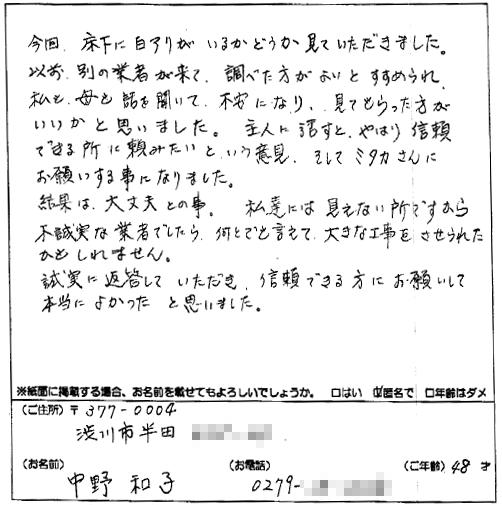 今回、床下に白アリがいるかどうか見ていただきました。
以前、別の業者が来て、調べた方がよいとすすめられ、
私も、母も話を聞いて、不安になり、見てもらった方が
いいかと思いました。 主人に話すと、やはり信頼
できる所に頼みたいという意見、そしてミタカさんに
お願いする事になりました。
結果は、大丈夫との事。 私達には見えない所ですから
不誠実な業者でしたら、何とでも言えて、大きな工事をさせられた
かもしれません。
誠実に返答していただき、信頼できる方にお願いして
本当によかったと思いました。
※紙面に掲載する場合、お名前を載せてもよろしいでしょうか。 □はい ☑匿名で □年齢はダメ
(ご住所) 〒377-0004
渋川市半田
(お名前) (お電話) (ご年齢) 48 才
中野 和子 0279-